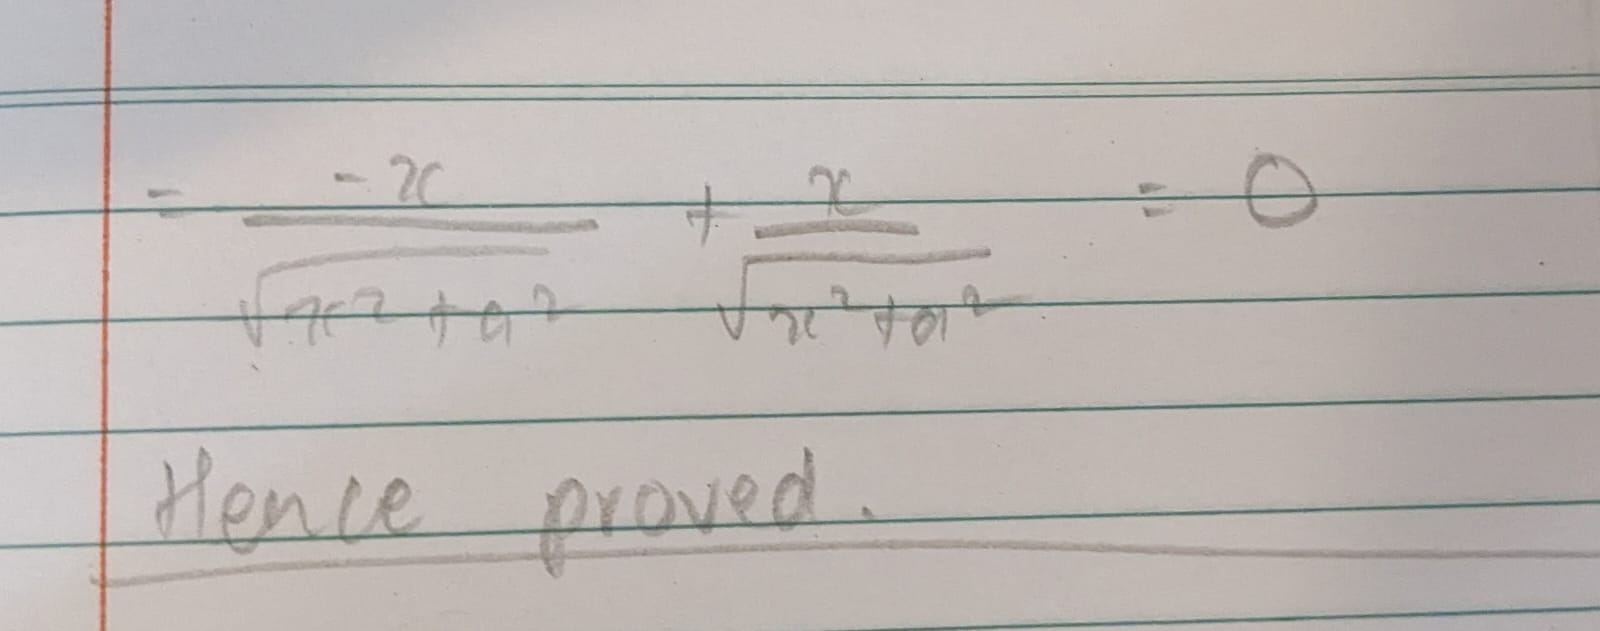 = -x/√(x²+a²) + x/√(x²+a²) = 0
Hence proved.